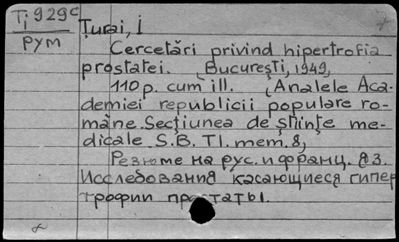 Ți 929c
РУМ
Țurai, I
Cercetări privind hipertrofia
prostatei. București, 1949,
110 p. cum ill. (Analele Aca-
demiei republicii populare ro-
mâne. Secțiunea de științe me-
dicale S.B. TI. mem. 8,
Резюме на рус. и франц. яз.
Исследования касающиеся гипер
трофии простаты.